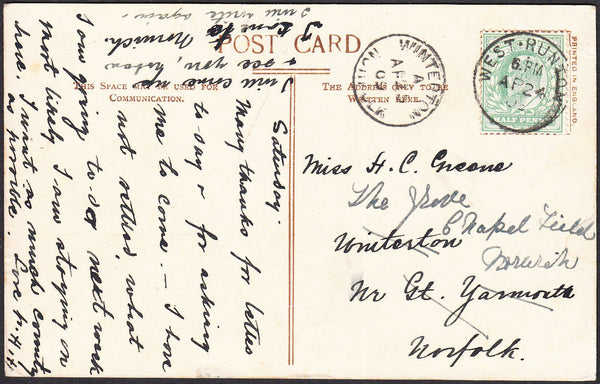 POST CARD
THIS SPACE MAY BE USED FOR
COMMUNICATION.
THE ADDRESS ONLY TO BE
WRITTEN HERE.
PRINTED IN ENGLAND
WEST·RUNTON
6.PM
AP 24
HALF PENNY
WINTERTON
A
AP 25
Miss H. C. Greene
The Grove
Chapel Field
Norwich
Winterton
Nr Gt. Yarmouth
Norfolk.
Saturday.
Many thanks for letter
to say & for asking
me to come. – I
not what
I am going to do next week
most likely I am staying on
here. I want so much
Love
I will come up
& see you, when
I come to Norwich.
I will write again.